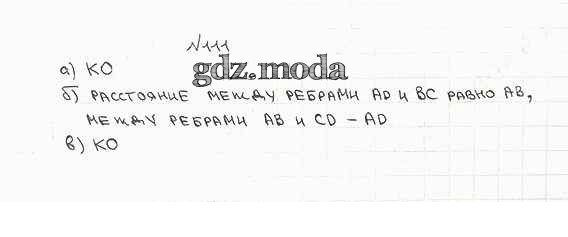 №111
gdz.moda
а) КО
б) РАССТОЯНИЕ МЕЖДУ РЕБРАМИ AD И BC РАВНО AB,
МЕЖДУ РЕБРАМИ AB И CD – AD
в) КО